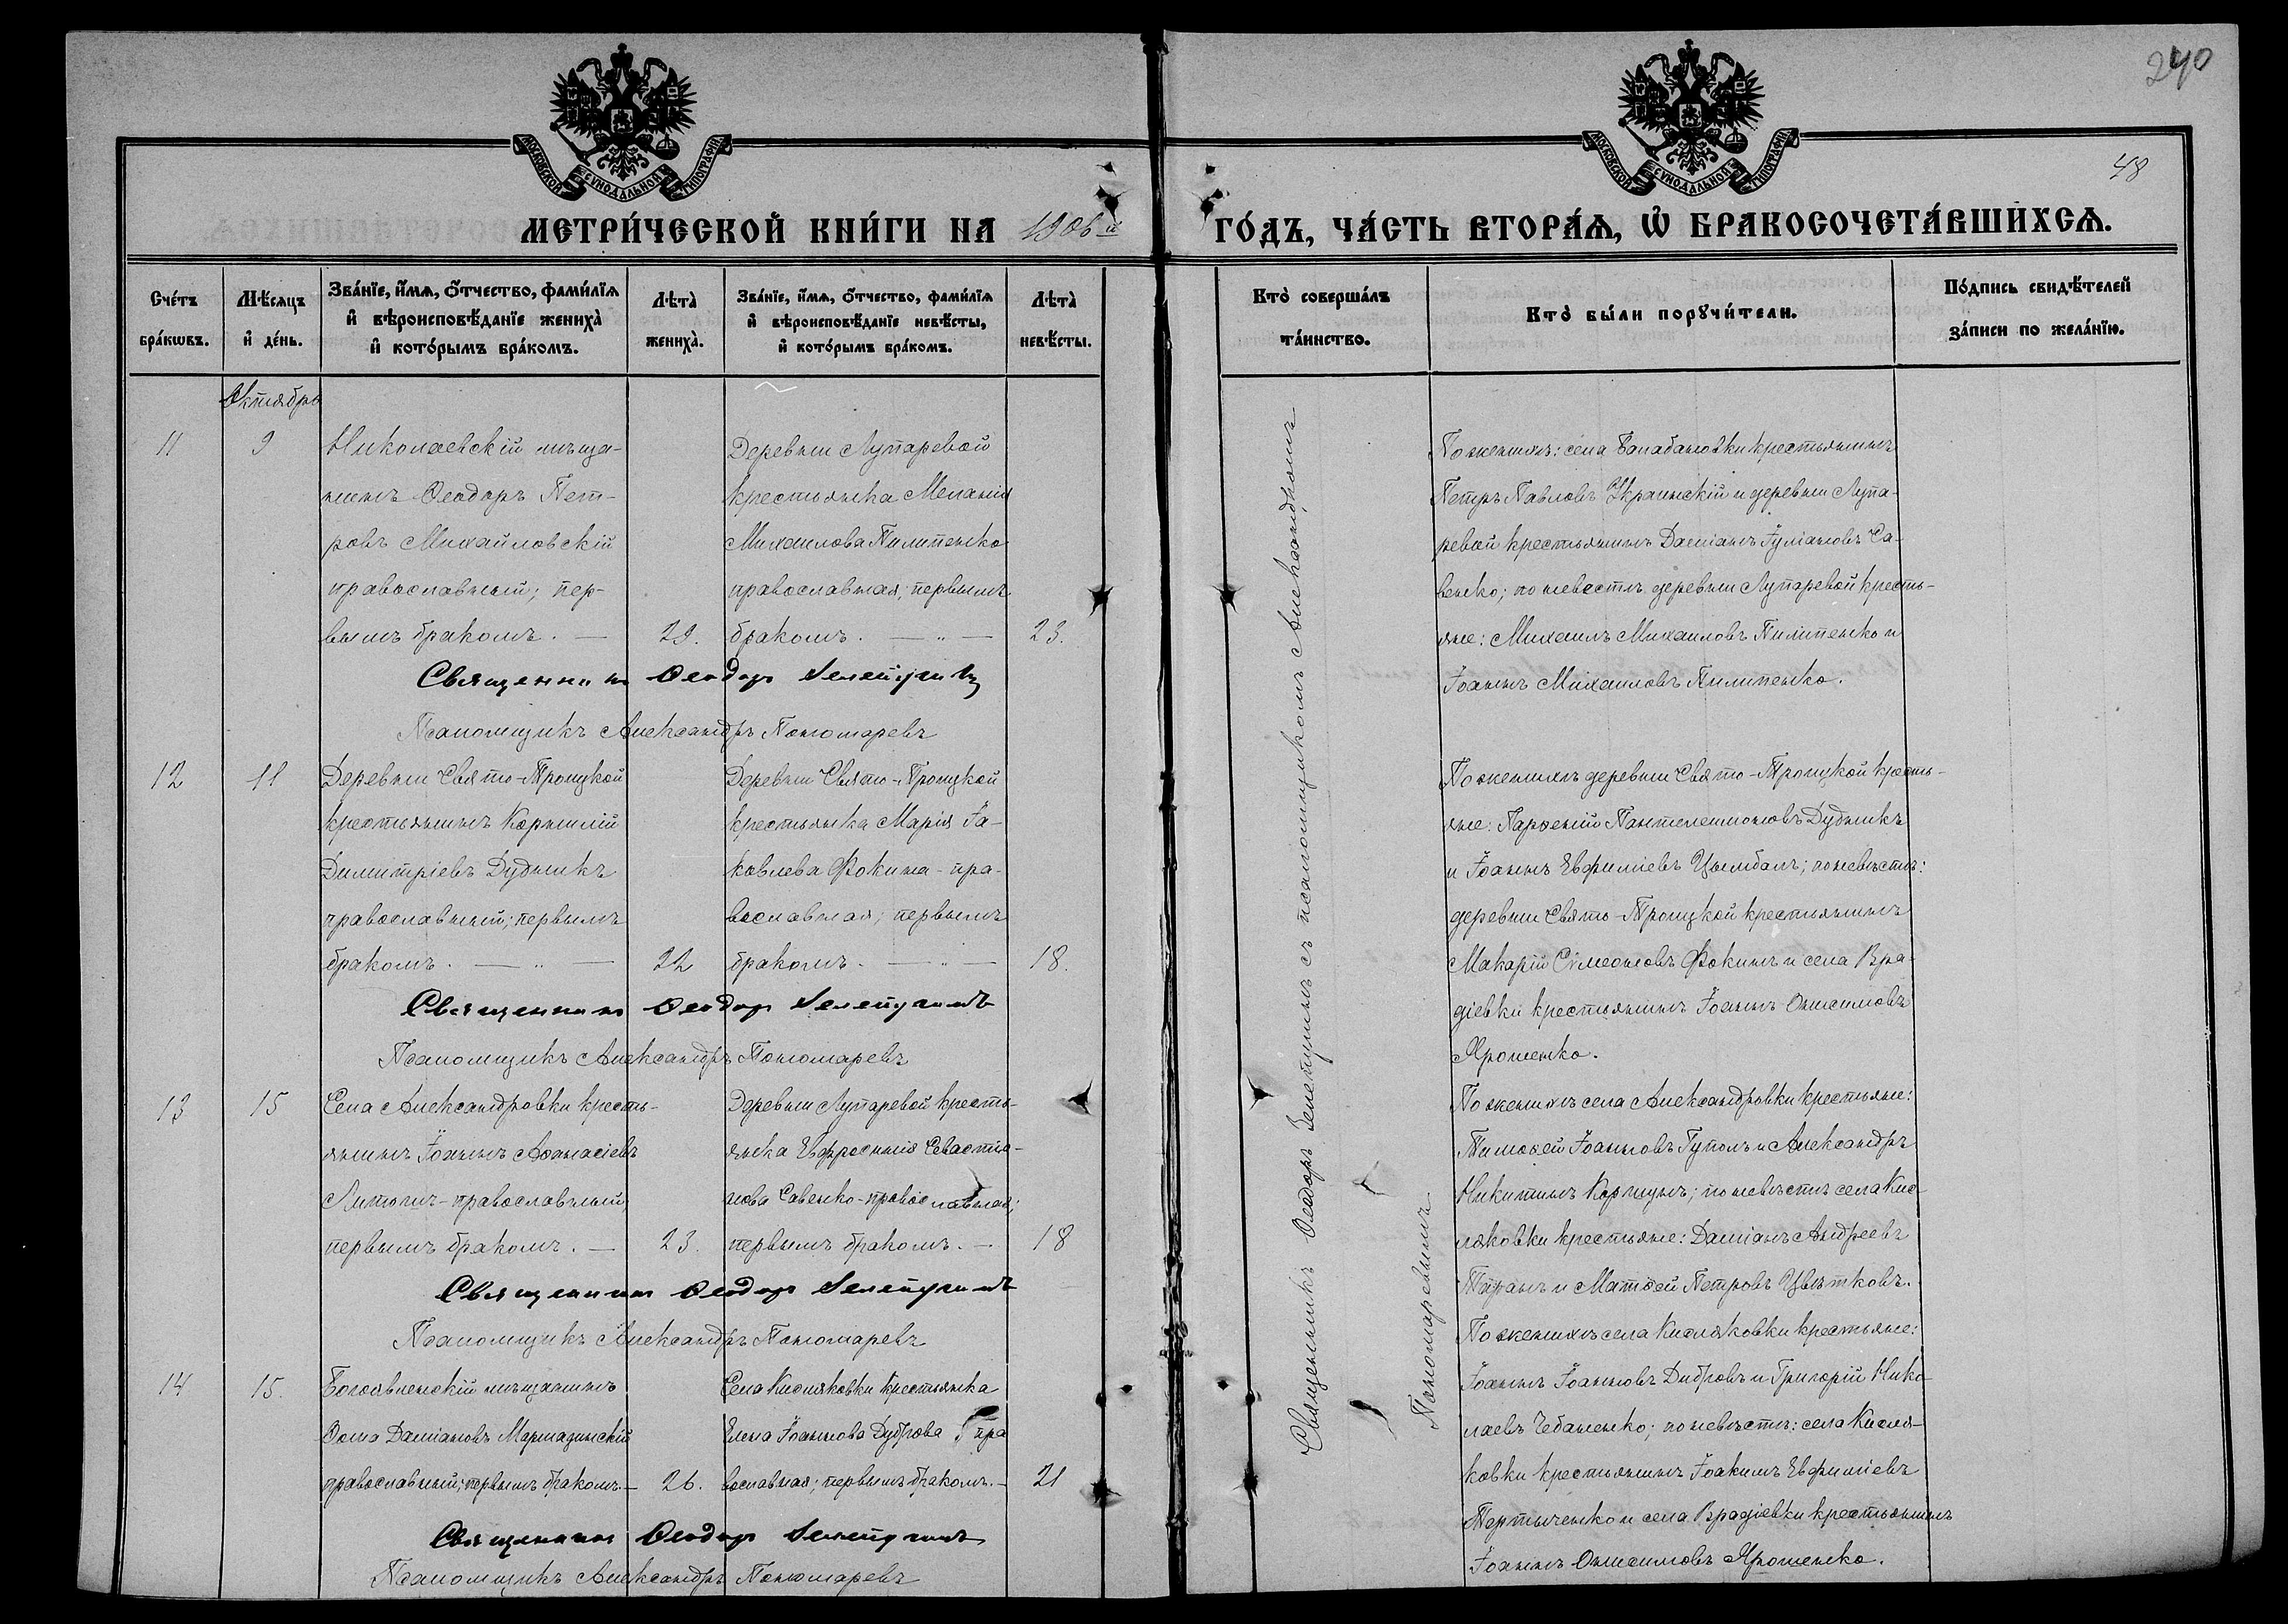 240
48
МОСКОВСКОЙ СѴНОДАЛЬНОЙ ТИПОГРАФІИ
МОСКОВСКОЙ СѴНОДАЛЬНОЙ ТИПОГРАФІИ
МЕТРИ́ЧЕСКОЙ КНИ́ГИ НА 1906й ГО́ДЪ, ЧА́СТЬ ВТОРА́Ѧ, Ѡ҆ БРАКОСОЧЕТА́ВШИХСѦ.
Сче́тъ бра́кѡвъ.
Мѣ́сяцъ и҆ де́нь.
Зва́нїе, и҆́мѧ, ѻ҆́тчество, фами́лїѧ и҆ вѣроисповѣ́данїе жениха̀ и҆ кото́рымъ бра́комъ.
Лѣта̀ жениха̀.
Зва́нїе, и҆́мѧ, ѻ҆́тчество, фами́лїѧ и҆ вѣроисповѣ́данїе невѣ́сты, и҆ кото́рымъ бра́комъ.
Лѣта̀ невѣ́сты.
Кто̀ соверша́лъ та́инство.
Кто̀ бы́ли порꙋчи́тели.
По́дпись свидѣ́телей за́писи по жела́нїю.
Октябрь
11
9
Николаевскій мѣща-
нинъ Ѳеодоръ Пет-
ровъ Михайловскій
православный; пер-
вымъ бракомъ. —
29.
Деревни Лупаревой
крестьянка Меланія
Михаилова Пилипенко
православная; первымъ
бракомъ. — „ —
23.
По женихѣ: села Балабановки крестьянинъ
Петръ Павловъ Украинскій и деревни Лупа-
ревой крестьянинъ Даміанъ Іуліановъ Са-
венко; по невѣстѣ деревни Лупаревой кресть-
яне: Михаилъ Михаиловъ Пилипенко и
Іоаннъ Михаиловъ Пилипенко.
Священникъ Ѳеодоръ
Псаломщикъ Александръ Пономаревъ
12
11
Деревни Свято-Троицкой
крестьянинъ Корнилій
Димитріевъ Дудникъ
православный; первымъ
бракомъ. — „ —
22
Деревни Свято-Троицкой
крестьянка Марія Іа-
ковлева Фокина - пра-
вославная; первымъ
бракомъ. — „ —
18.
По женихѣ деревни Свято-Троицкой кресть-
яне: Парѳеній Пантелеимоновъ Дудникъ
и Іоаннъ Евфиміевъ Цымбалъ; по невѣстѣ:
деревни Свято-Троицкой крестьянинъ
Макарій Сѵмеоновъ Фокинъ и села Вра-
діевки крестьянинъ Іоаннъ Онисимовъ
Ярошенко.
Священникъ Ѳеодоръ
Псаломщикъ Александръ Пономаревъ
13
15
Села Александровки кресть-
янинъ Іоаннъ Аѳанасіевъ
православный
первымъ бракомъ. —
23.
Деревни Лупаревой кресть-
янка Евфросинія Севастіа-
нова Савенко-православная;
первымъ бракомъ. —
18
По женихѣ села Александровки крестьяне:
Тимоѳей Іоанновъ Гуполъ и Александръ
Никитинъ Коршунъ; по невѣстѣ села Кис-
ляковки крестьяне: Даміанъ Андреевъ
Таранъ и Матѳей Петровъ Цвѣтковъ.
Священникъ Ѳеодоръ
Псаломщикъ Александръ Пономаревъ
14
15.
Богоявленскій мѣщанинъ
Ѳома Даміановъ Мармазинскій
православный; первымъ бракомъ. —
26.
Села Кисляковки крестьянка
Елена Іоаннова Дуброва пра
вославная; первымъ бракомъ. —
21
По женихѣ села Кисляковки крестьяне:
Іоаннъ Іоанновъ Дибровъ и Григорій Нико-
лаевъ Чебаненко; по невѣстѣ: села Кисля-
ковки крестьянинъ Іоакимъ Евфиміевъ
Тертыченко и села Врадіевки крестьянинъ
Іоаннъ Онисимовъ Ярошенко.
Священникъ Ѳеодоръ
Псаломщикъ Александръ Пономаревъ
Священникъ Ѳеодоръ съ псаломщикомъ Александромъ
Пономаревымъ